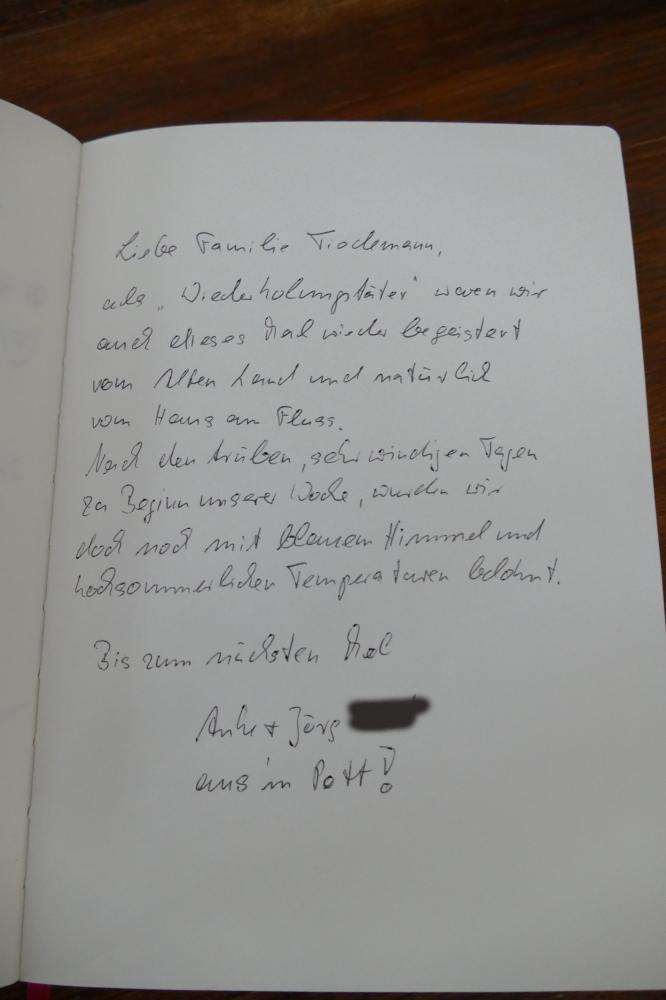 Liebe Familie Tiedemann,
als „Wiederholungstäter" waren wir
auch dieses Mal wieder begeistert
vom Alten Land und natürlich
vom Haus am Fluss.
Nach den trüben, sehr windigen Tagen
zu Beginn unserer Woche, wurden wir
doch noch mit blauem Himmel und
hochsommerlichen Temperaturen belohnt.
Bis zum nächsten Mal
Anke + Jörg
aus'm Pott!